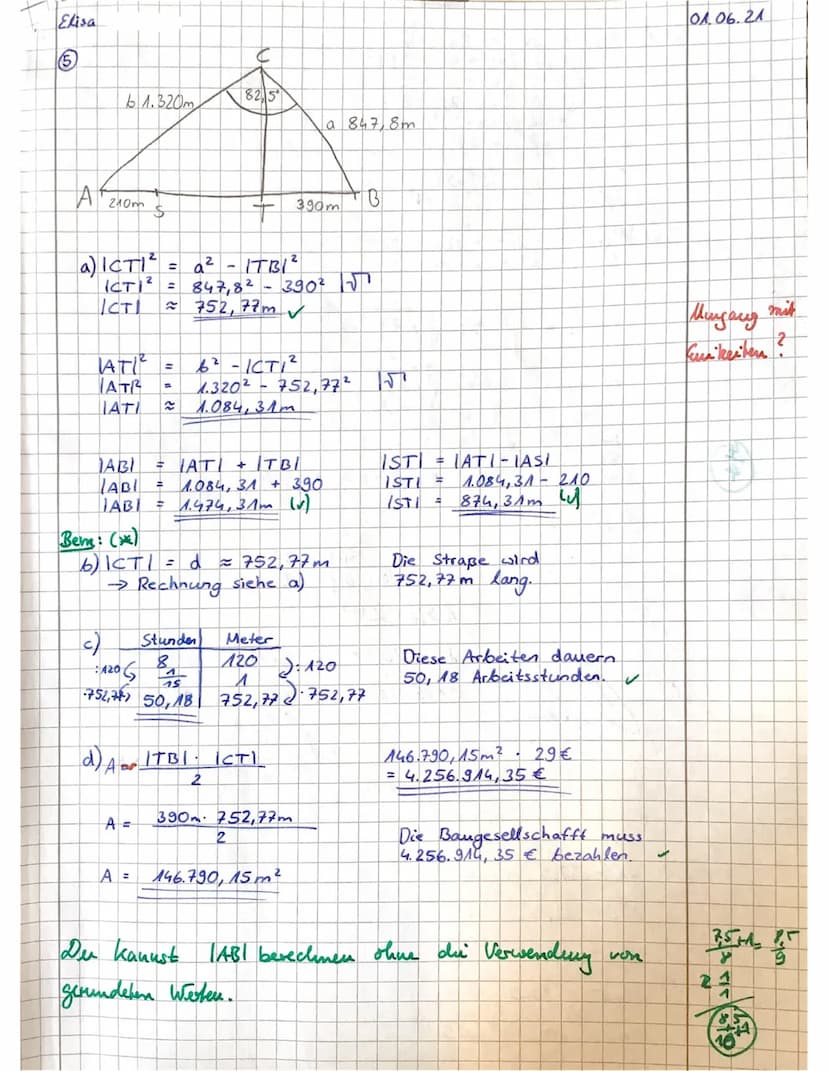 Elisa
01.06.21
5
C
b 1.320m
82,5°
a 847,8m
A
210m
S
T
390m
B
a) |CT|² = a² - |TB|²
|CT|² = 847,8² - 390² |√
|CT| ≈ 752,77m ✓
Umgang mit
Einheiten?
|AT|² = b² - |CT|²
|AT|² = 1.320² - 752,77² |√
|AT| ≈ 1.084,31m
|AB| = |AT| + |TB|
|AB| = 1.084,31 + 390
|AB| = 1.474,31m (✓)
|ST| = |AT| - |AS|
|ST| = 1.084,31 - 210
|ST| = 874,31m (✓)
Bem: (*)
b) |CT| = d ≈ 752,77m
→ Rechnung siehe a)
Die Straße wird
752,77m lang.
c) Stunden Meter
:120 8 120 :120
1/15 1
·752,77 50,18 752,77 ·752,77
Diese Arbeiten dauern
50,18 Arbeitsstunden. ✓
d) A = |TB| · |CT|
2
A = 390m · 752,77m
2
A = 146.790,15m²
146.790,15m² · 29€
= 4.256.914,35 €
Die Baugesellschafft muss
4.256.914,35 € bezahlen. ✓
Du kannst |AB| berechnen ohne die Verwendung von
gerundeten Werten.
7,5
8
+1=
8,5
9
1
1